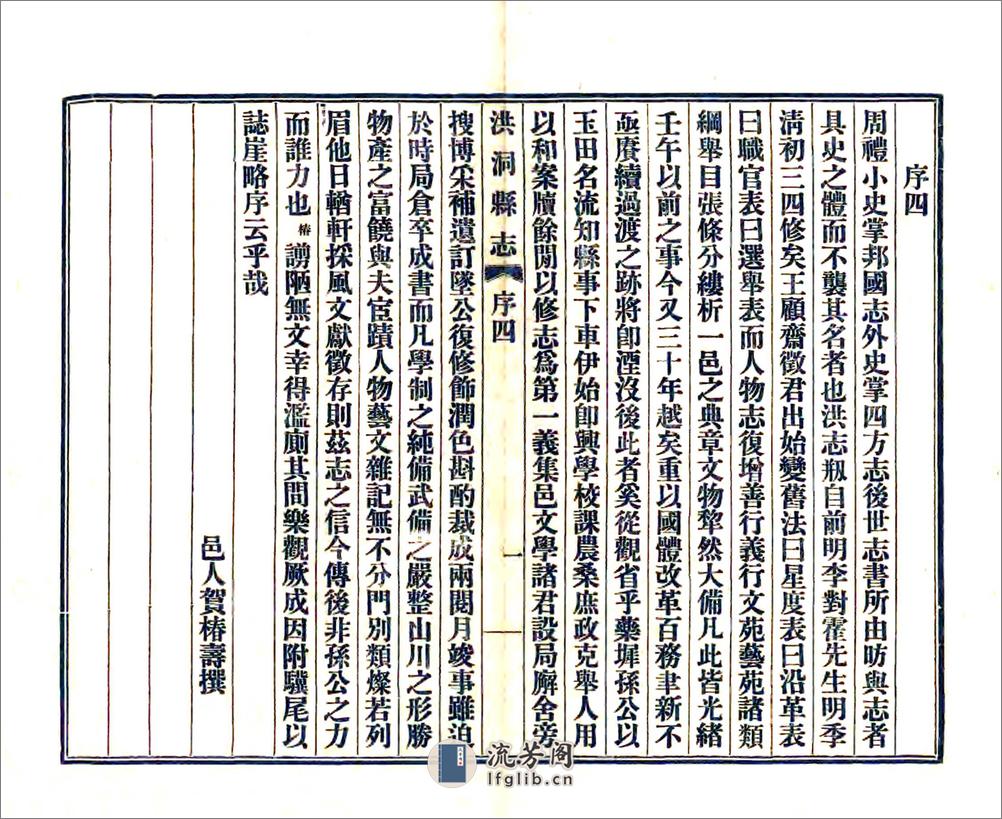 序四
周禮小史掌邦國志外史掌四方志後世志書所由昉與志者
具史之體而不襲其名者也洪志刱自前明李對霍先生明季
淸初三四修矣王顧齋徵君出始變舊法曰星度表曰沿革表
曰職官表曰選舉表而人物志復增善行義行文苑藝苑諸類
綱舉目張條分縷析一邑之典章文物犂然大備凡此皆光緒
壬午以前之事今又三十年越矣重以國體改革百務聿新不
亟賡續過渡之跡將卽湮沒後此者奚從觀省乎藥墀孫公以
玉田名流知縣事下車伊始卽興學校課農桑庶政克舉人用
以和案牘餘閒以修志爲第一義集邑文學諸君設局廨舍旁
洪洞縣志 序四 一
搜博采補遺訂墜公復修飾潤色斟酌裁成兩閱月竣事雖迫
於時局倉卒成書而凡學制之純備武備之嚴整山川之形勝
物產之富饒與夫宦蹟人物藝文雜記無不分門別類燦若列
眉他日輶軒採風文獻徵存則茲志之信今傳後非孫公之力
而誰力也椿謭陋無文幸得濫廁其間樂觀厥成因附驥尾以
誌崖略序云乎哉
邑人賀椿壽撰
流芳阁
lfglib.cn